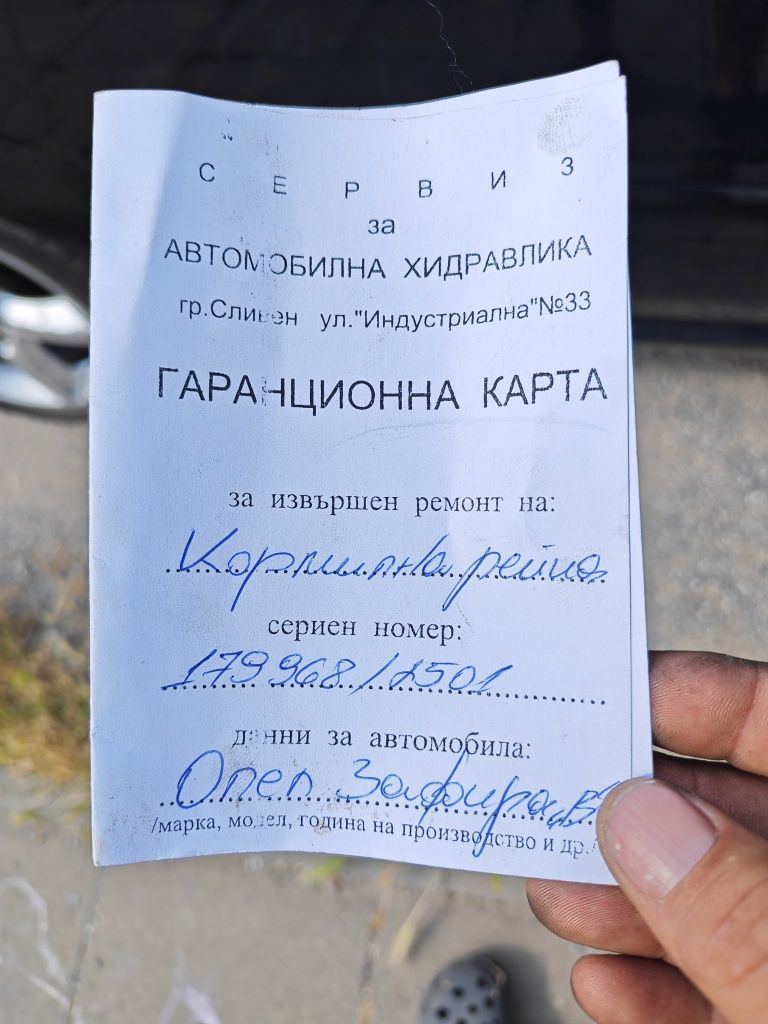 СЕРВИЗ
за
АВТОМОБИЛНА ХИДРАВЛИКА
гр.Сливен ул."Индустриална"№33
ГАРАНЦИОННА КАРТА
за извършен ремонт на:
Кормилна рейка
сериен номер:
179968/2501
данни за автомобила:
Опел Зафира „В“
/марка, модел, година на производство и др./